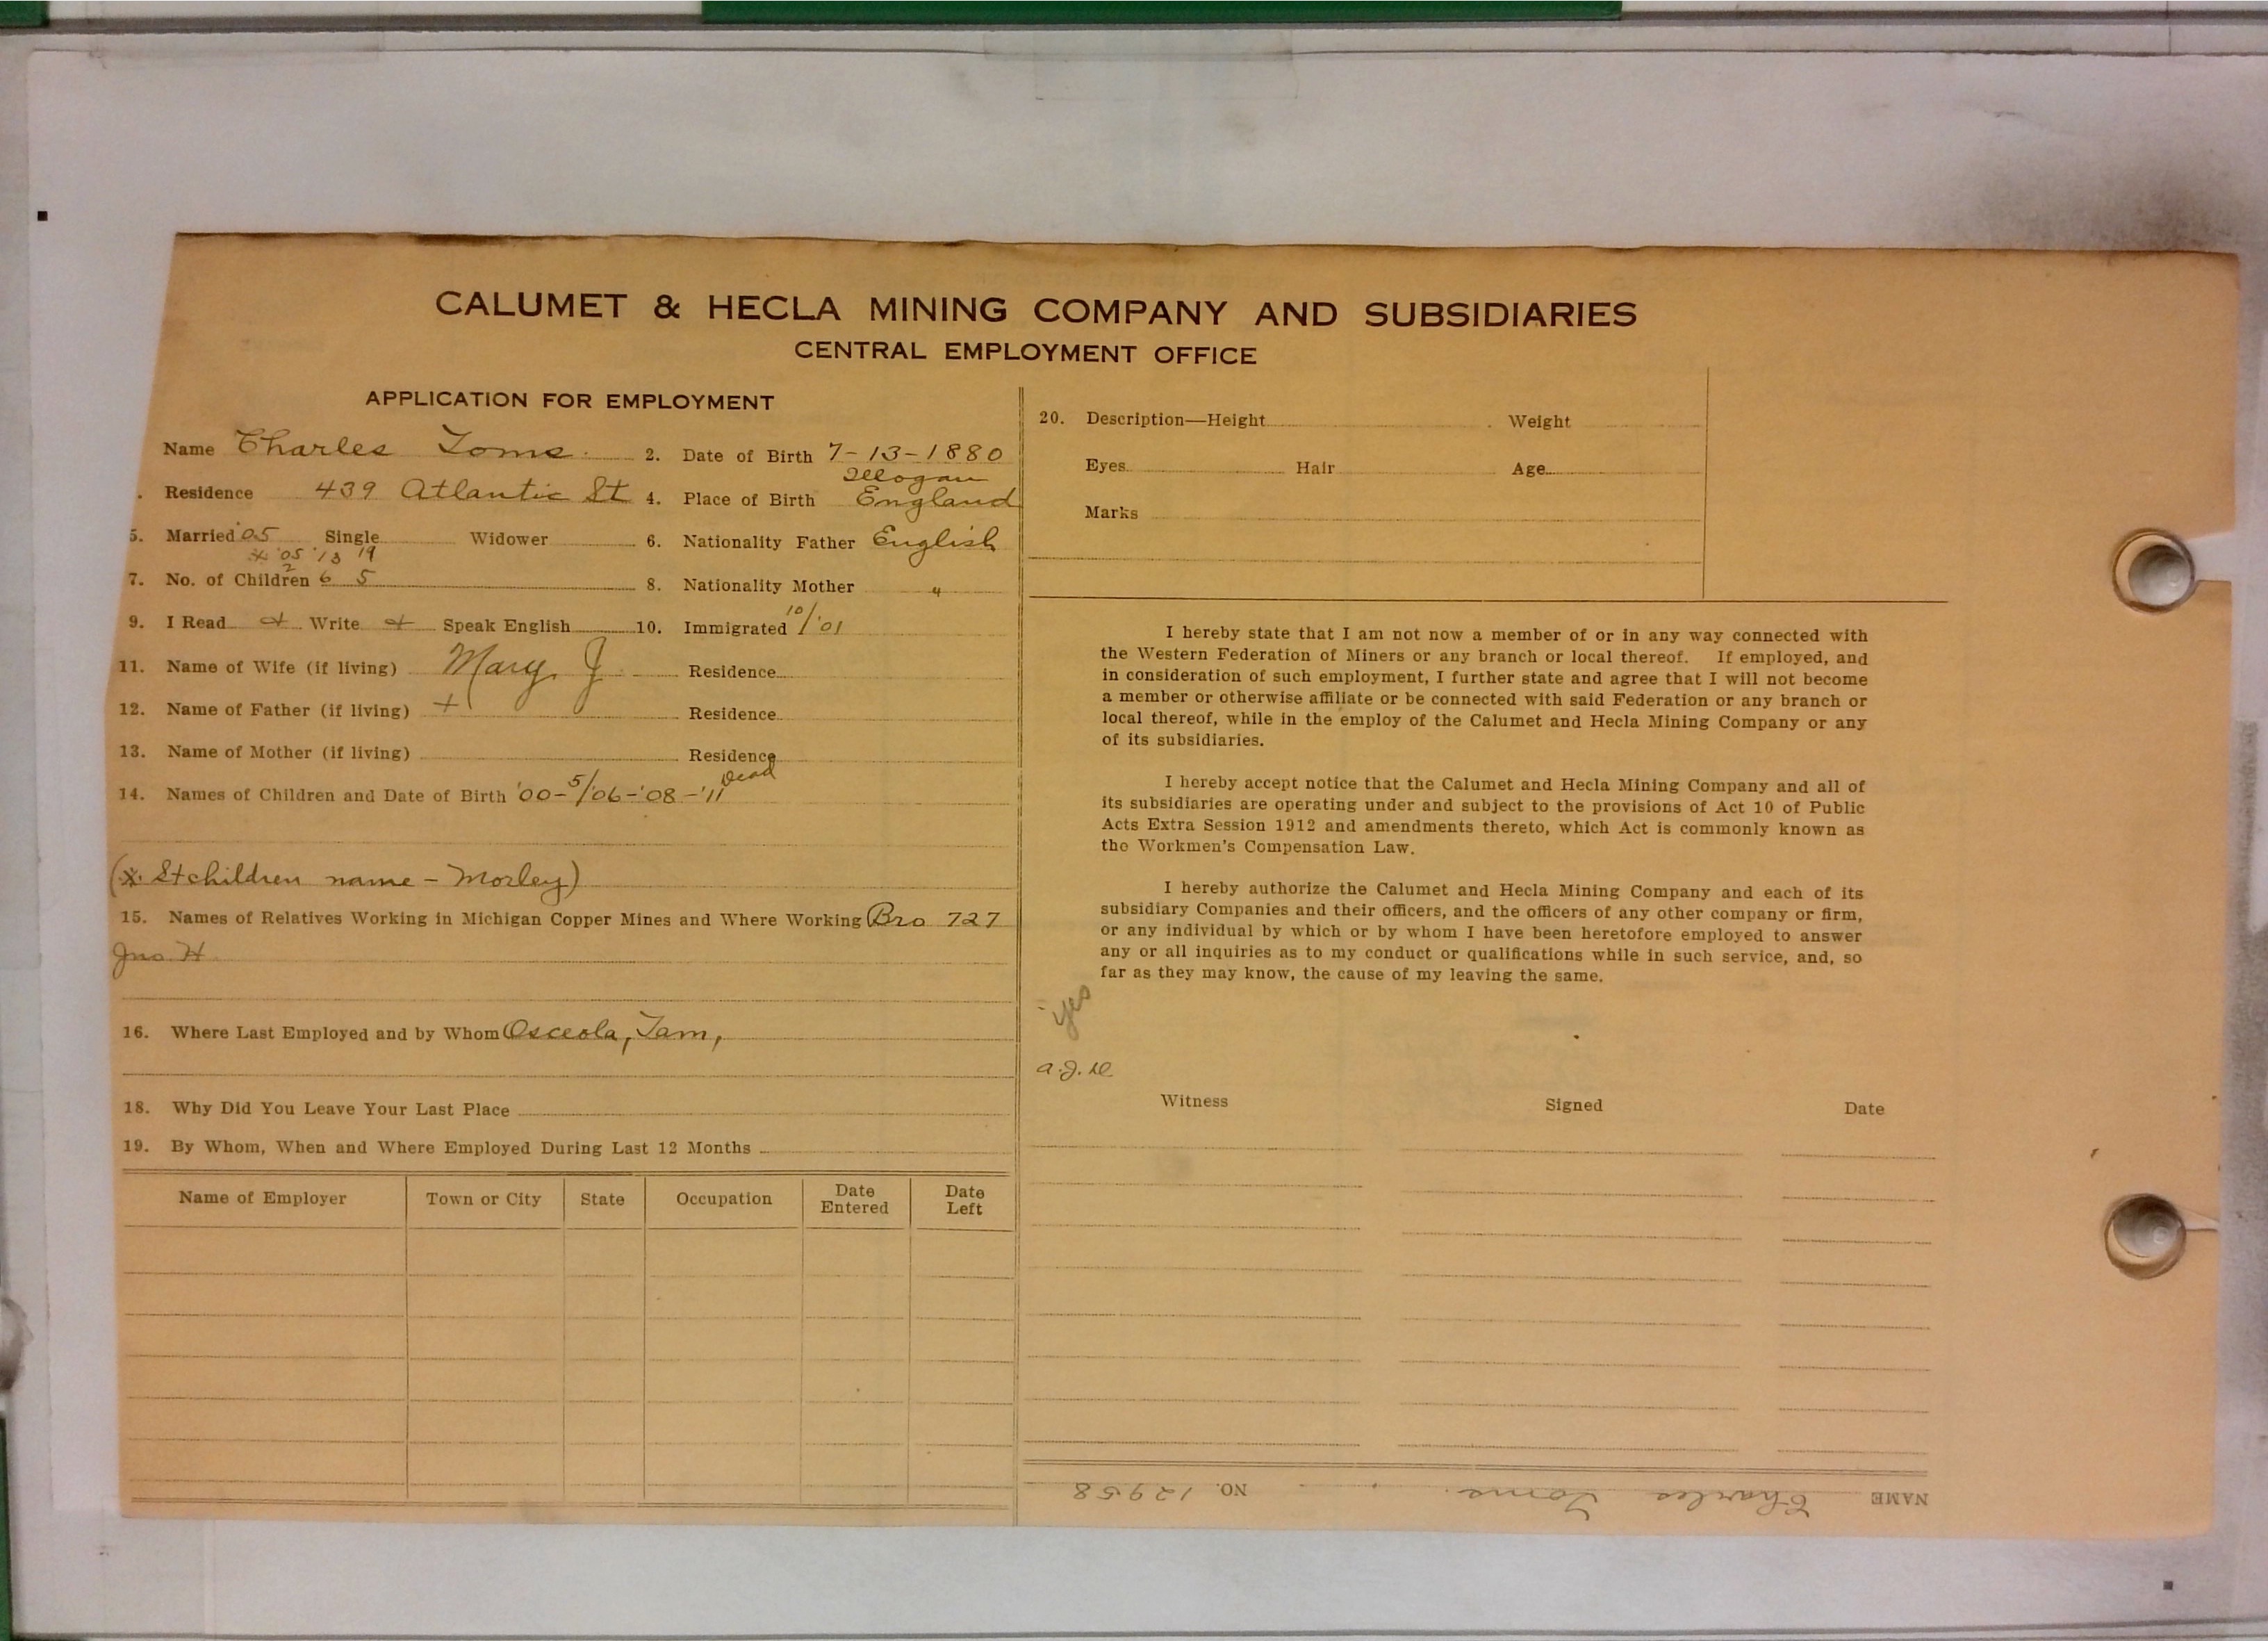 CALUMET & HECLA MINING COMPANY AND SUBSIDIARIES
CENTRAL EMPLOYMENT OFFICE
APPLICATION FOR EMPLOYMENT
Name Charles Toms 2. Date of Birth 7-13-1880
Illogan
. Residence 439 Atlantic St 4. Place of Birth England
5. Married '05 Single Widower 6. Nationality Father English
* '05 '13 19
2
7. No. of Children 6 5 8. Nationality Mother "
9. I Read + Write + Speak English 10. Immigrated 10/'01
11. Name of Wife (if living) Mary J Residence
12. Name of Father (if living) + Residence
13. Name of Mother (if living) Residence
Dead
14. Names of Children and Date of Birth '00-5/'06-'08-'11
(* Stchildren name - Morley)
15. Names of Relatives Working in Michigan Copper Mines and Where Working Bro 727
Jno H
16. Where Last Employed and by Whom Osceola, Tam,
18. Why Did You Leave Your Last Place
19. By Whom, When and Where Employed During Last 12 Months
Name of Employer Town or City State Occupation Date Entered Date Left
20. Description—Height Weight
Eyes Hair Age
Marks
I hereby state that I am not now a member of or in any way connected with
the Western Federation of Miners or any branch or local thereof. If employed, and
in consideration of such employment, I further state and agree that I will not become
a member or otherwise affiliate or be connected with said Federation or any branch or
local thereof, while in the employ of the Calumet and Hecla Mining Company or any
of its subsidiaries.
I hereby accept notice that the Calumet and Hecla Mining Company and all of
its subsidiaries are operating under and subject to the provisions of Act 10 of Public
Acts Extra Session 1912 and amendments thereto, which Act is commonly known as
the Workmen's Compensation Law.
I hereby authorize the Calumet and Hecla Mining Company and each of its
subsidiary Companies and their officers, and the officers of any other company or firm,
or any individual by which or by whom I have been heretofore employed to answer
any or all inquiries as to my conduct or qualifications while in such service, and, so
far as they may know, the cause of my leaving the same.
yes
Witness Signed Date
NAME Charles Toms. NO. 12958